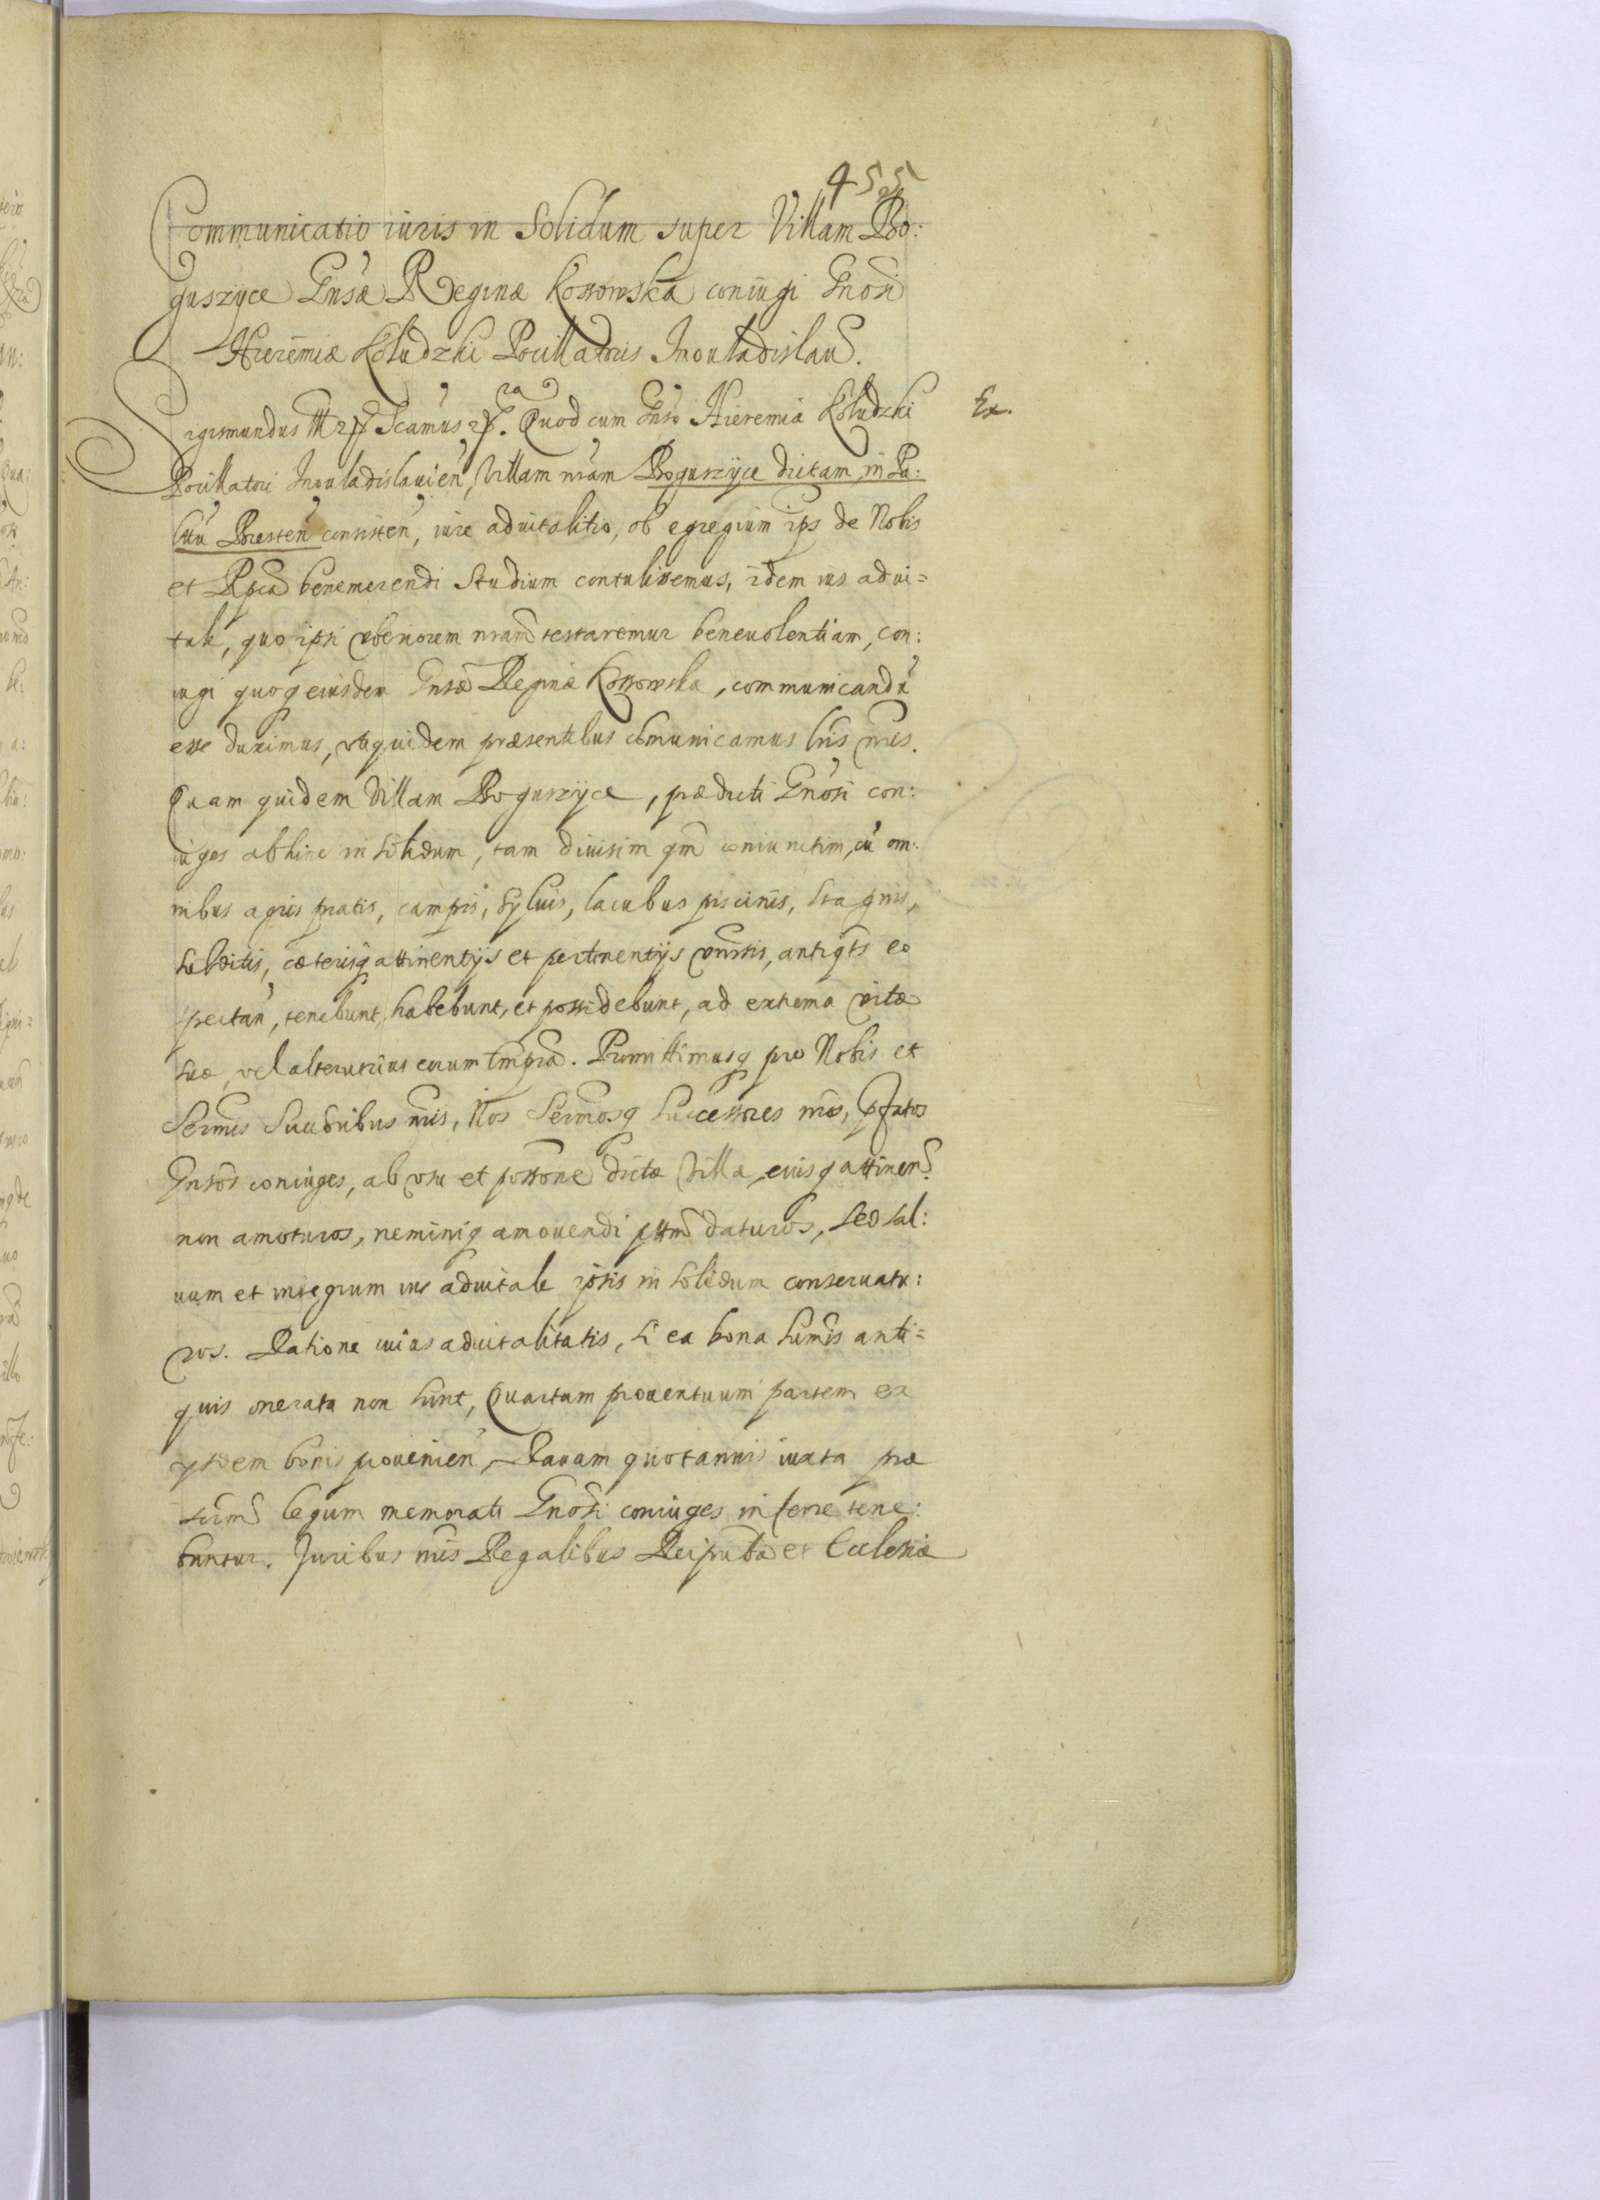 455
Communicatio iuris in Solidum super Villam Bo:
guszyce Gnsæ Reginæ Kossowska coniugi Gnosi
Hieremiæ Kołudzki Pocillatoris Inouladislaun.
Sigismundus III Quod cum Gnso Hieremia Kołudzki
Ex.
Pocillatori Inouladislauien, Villam nram Boguszyce dictam, in Pa:
lttu Bresten consisten, iure aduitalitio, ob egregium ips de Nobis
et Rpca benemerendi Studium contulissemus, idem ius adui=
tale, quo ipsi vberiorem nram testaremur beneuolentiam, con:
iugi quoq eiusdem Gnsæ Reginæ Kossowska, communicandu
esse duximus, vtiquidem præsentibus cõmunicamus lris nris.
Quam quidem Villam Boguszyce, prædicti Gnosi con:
iuges abhinc in solidum, tam diuisim qm coniunctim, cu om:
nibus agris pratis, campis, syluis, lacubus piscinis, stagnis,
subditis, cæterisq attinentijs et pertinentijs vnirsis, antiqts eo
spectan, tenebunt, habebunt, et possidebunt, ad extrema vitæ
suæ, vel alterutrius eorum tmpra. Promittimusq pro Nobis et
Sermis Succoribus nris, Nos Sermosq Successores nros, pfatos
Gnsos coniuges, ab vsu et possone dictæ Villæ, eiusq attinen.
non amoturos, neminiq amouendi pttm daturos, sed sal:
uum et integrum ius aduitale ipsis in solidum conseruatu:
ros. Ratione cuius aduitalitatis, si ea bona summis anti=
quis onerata non sunt, Quartam prouentuum partem ex
ysdem bonis prouenien, Rauam quotannis iuxta præ
scrm legum memorati Gnosi coniuges inferre tene:
buntur. Juribus nris Regalibus Reipubæ et Ecclesiæ